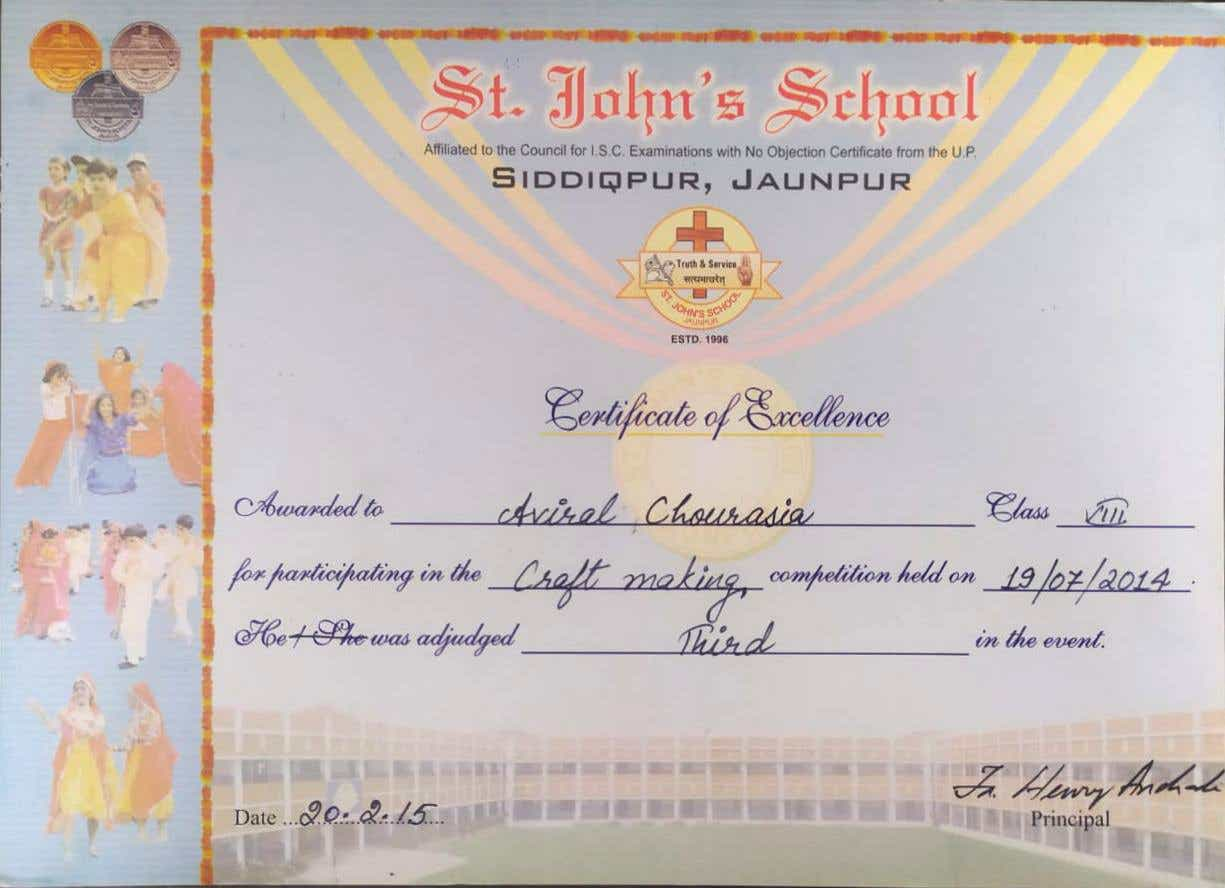 St. John's School
Affiliated to the Council for I.S.C. Examinations with No Objection Certificate from the U.P.
SIDDIQPUR, JAUNPUR
Truth & Service
सत्यमाचरेत्
ST. JOHN'S SCHOOL
JAUNPUR
ESTD. 1996
Certificate of Excellence
Awarded to Aviral Chourasia Class VIII
for participating in the Craft making, competition held on 19/07/2014.
He / She was adjudged Third in the event.
Fr. Henry
Date ...20.2.15...
Principal